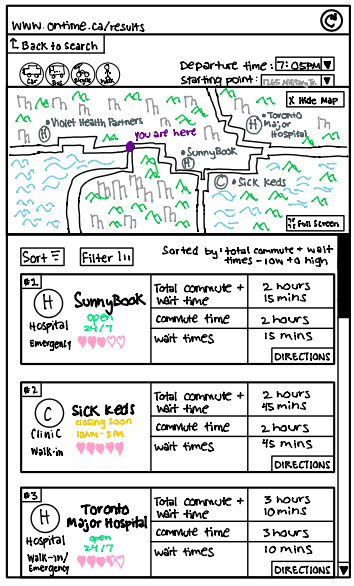 www.ontime.ca/results
Back to search
Car
Bus
Bicycle
Walk
Departure time: 7:05PM
starting point: 1265 Military Tr.
X Hide Map
H
• Violet Health Partners
H
• Toronto
Major
Hospital
you are here
• SunnyBook
H
C • Sick Keds
Full Screen
Sort
Filter
Sorted by: total commute + wait
times - low to high
#1
H
Hospital
Emergency
SunnyBook
open
24/7
Total commute +
wait time
2 hours
15 mins
commute time
2 hours
wait times
15 mins
DIRECTIONS
#2
C
Clinic
Walk-in
Sick Keds
closing soon
10AM-5PM
Total commute +
wait time
2 hours
45 mins
commute time
2 hours
wait times
45 mins
DIRECTIONS
#3
H
Hospital
Walk-in/
Emergency
Toronto
Major Hospital
open
24/7
Total commute +
wait time
3 hours
10 mins
commute time
3 hours
wait times
10 mins
DIRECTIONS